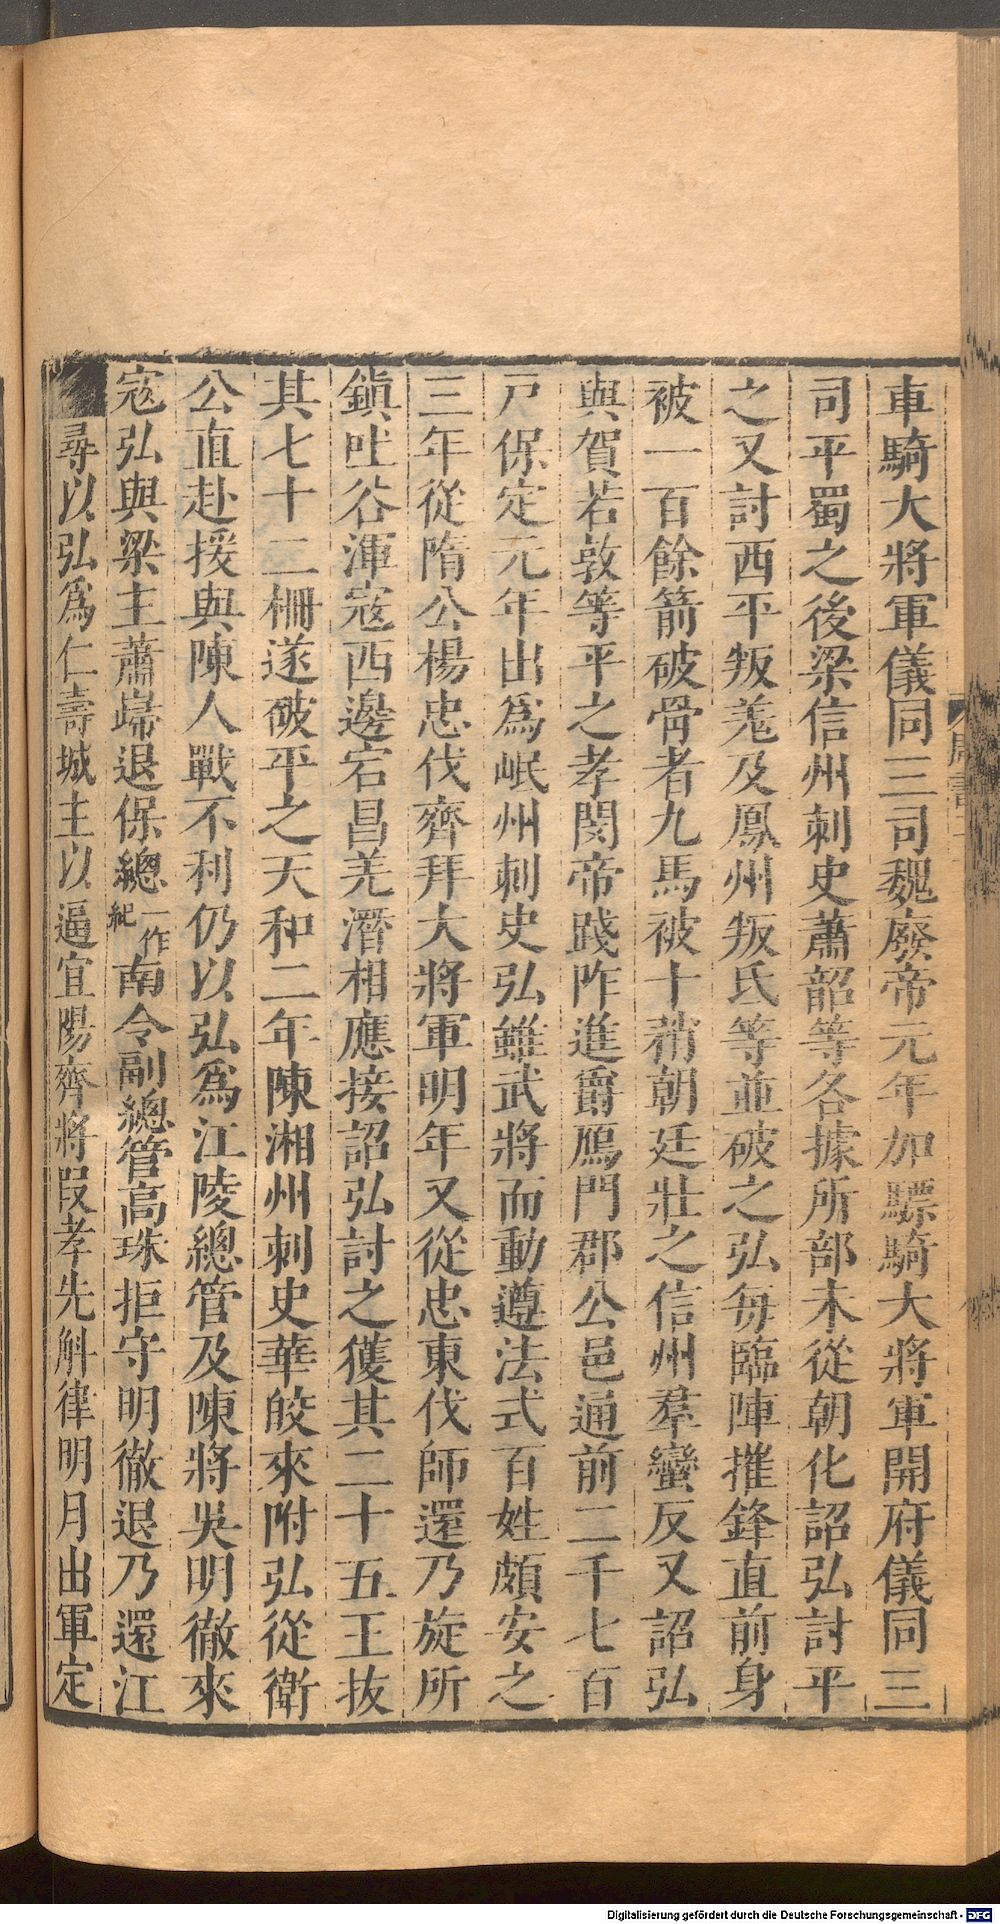 車騎大將軍儀同三司魏廢帝元年加驃騎大將軍開府儀同三
司平蜀之後梁信州刺史蕭韶等各據所部未從朝化詔弘討平
之又討西平叛羌及鳳州叛氐等並破之弘每臨陣摧鋒直前身
被一百餘箭破骨者九馬被十矟朝廷壯之信州羣蠻反又詔弘
與賀若敦等平之孝閔帝踐阼進爵鴈門郡公邑通前二千七百
戸保定元年出爲岷州刺史弘雖武將而動遵法式百姓頗安之
三年從隋公楊忠伐齊拜大將軍明年又從忠東伐師還乃旋所
鎮吐谷渾寇西邊宕昌羌潛相應接詔弘討之獲其二十五王拔
其七十二柵遂破平之天和二年陳湘州刺史華皎來附弘從衛
公直赴援與陳人戰不利仍以弘爲江陵總管及陳將吳明徹來
寇弘與梁主蕭巋退保總一作紀南令副總管高珠拒守明徹退乃還江
尋以弘爲仁壽城主以逼宜陽齊將叚孝先斛律明月出軍定
Digitalisierung gefördert durch die Deutsche Forschungsgemeinschaft - DFG